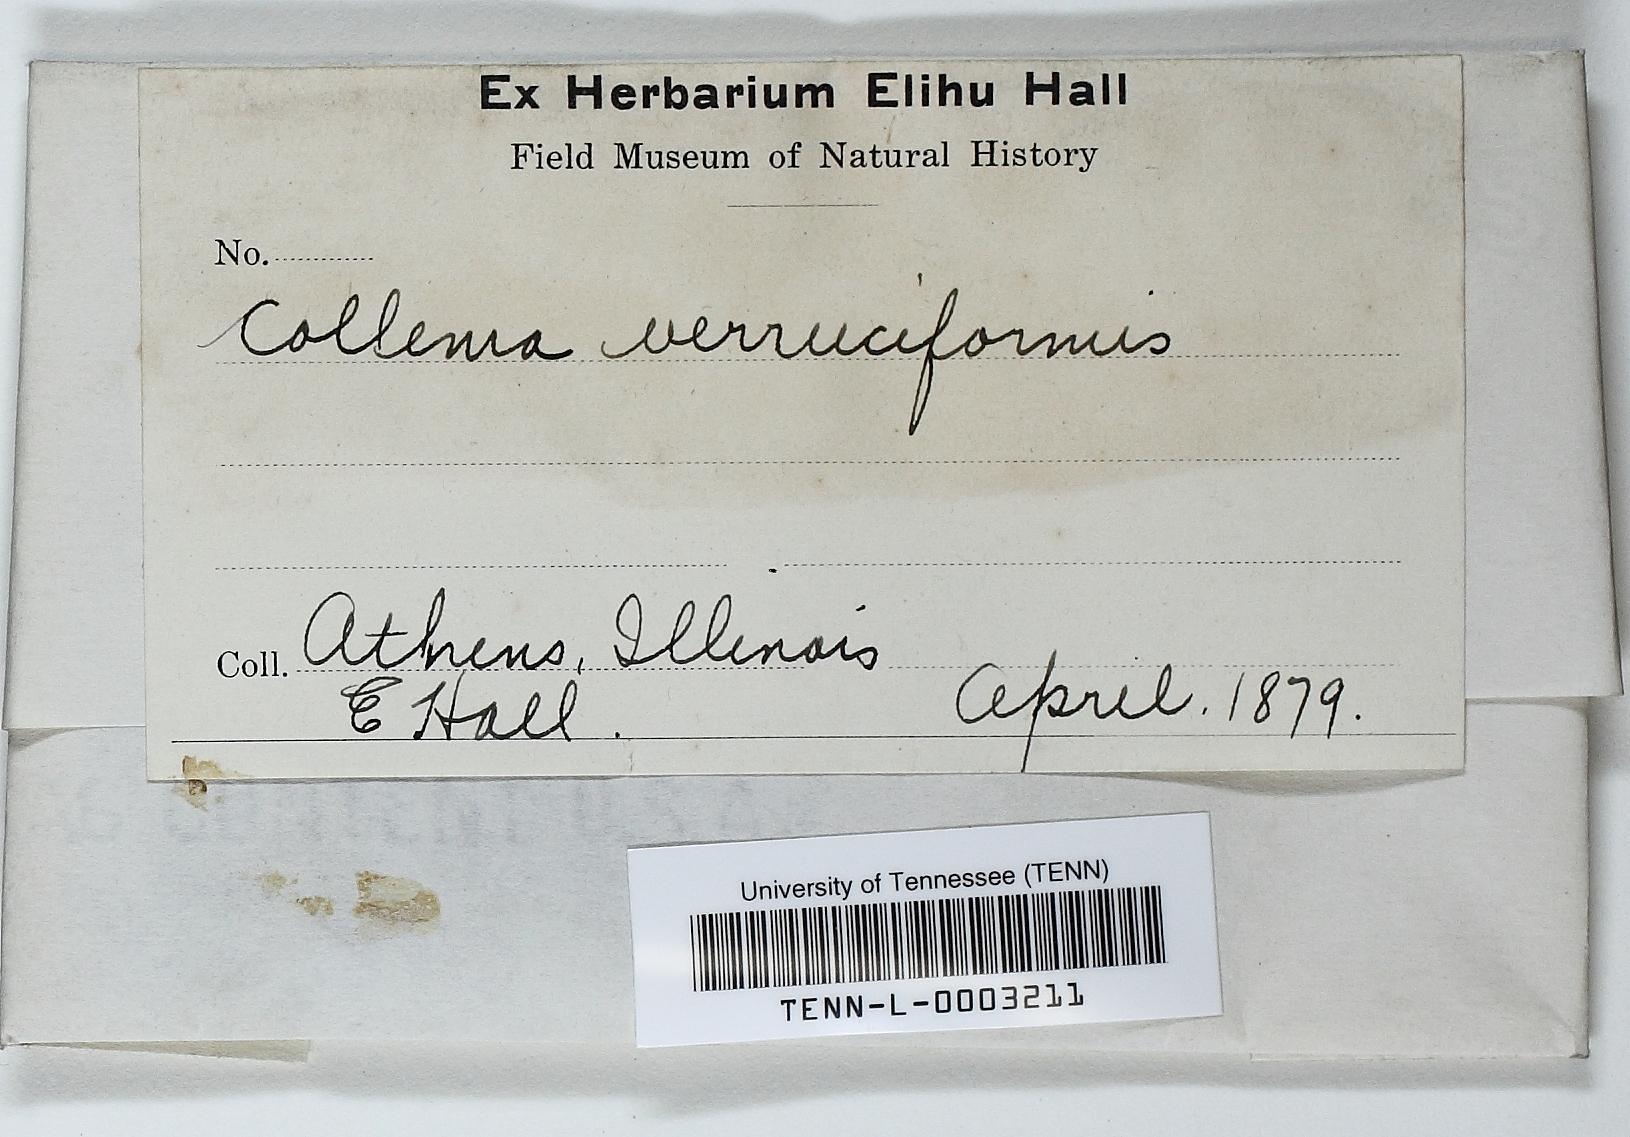 Ex Herbarium Elihu Hall
Field Museum of Natural History
No.
Collema verruciformis
Coll. Athens, Illinois
E Hall. April. 1879.
University of Tennessee (TENN)
TENN-L-0003211